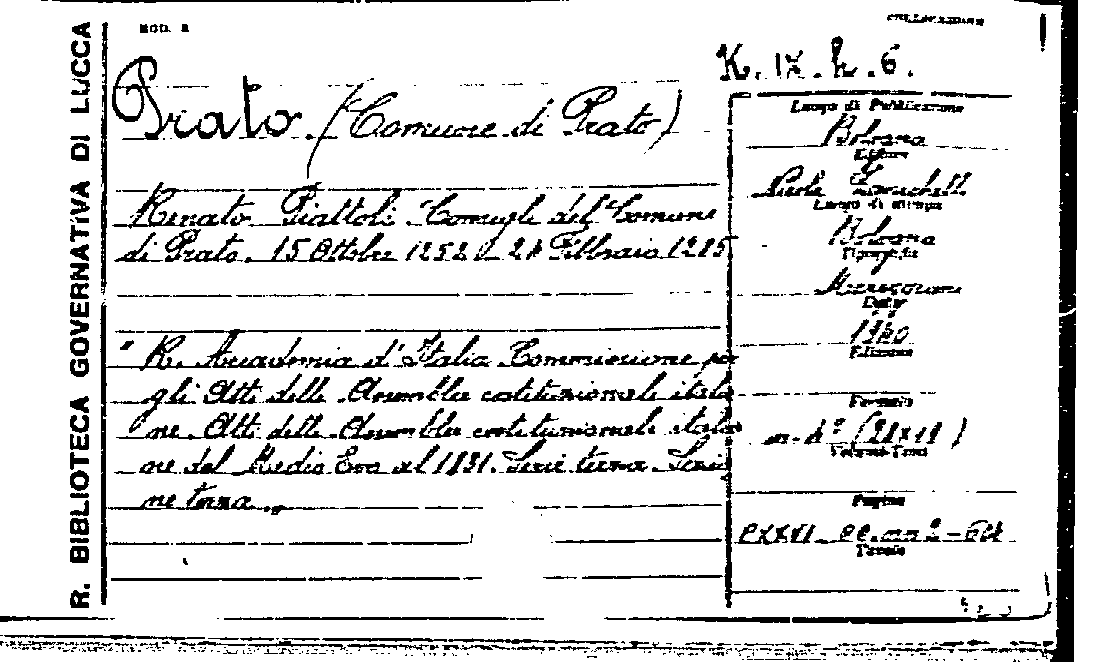 MOD. R
COLLOCAZIONE
R. BIBLIOTECA GOVERNATIVA DI LUCCA
K. IX. h. 6.
Prato (Comune di Prato)
Renato Piattoli Consigli del Comune
di Prato. 15 Ottobre 1252 24 Febbraio 1285
"R. Accademia d'Italia Commissione per
gli Atti delle Assemblee costituzionali italia
ne. Atti delle Assemblee costituzionali italia
ne del Medio Evo al 1831. Serie terza. Sezio
ne terza
Luogo di Pubblicazione
Bologna
Editore
Zanichelli
Luogo di stampa
Bologna
Tipografia
Data
1940
Edizione
Formato
in-4° (28x18)
Volumi-Tomi
Pagine
Tavole